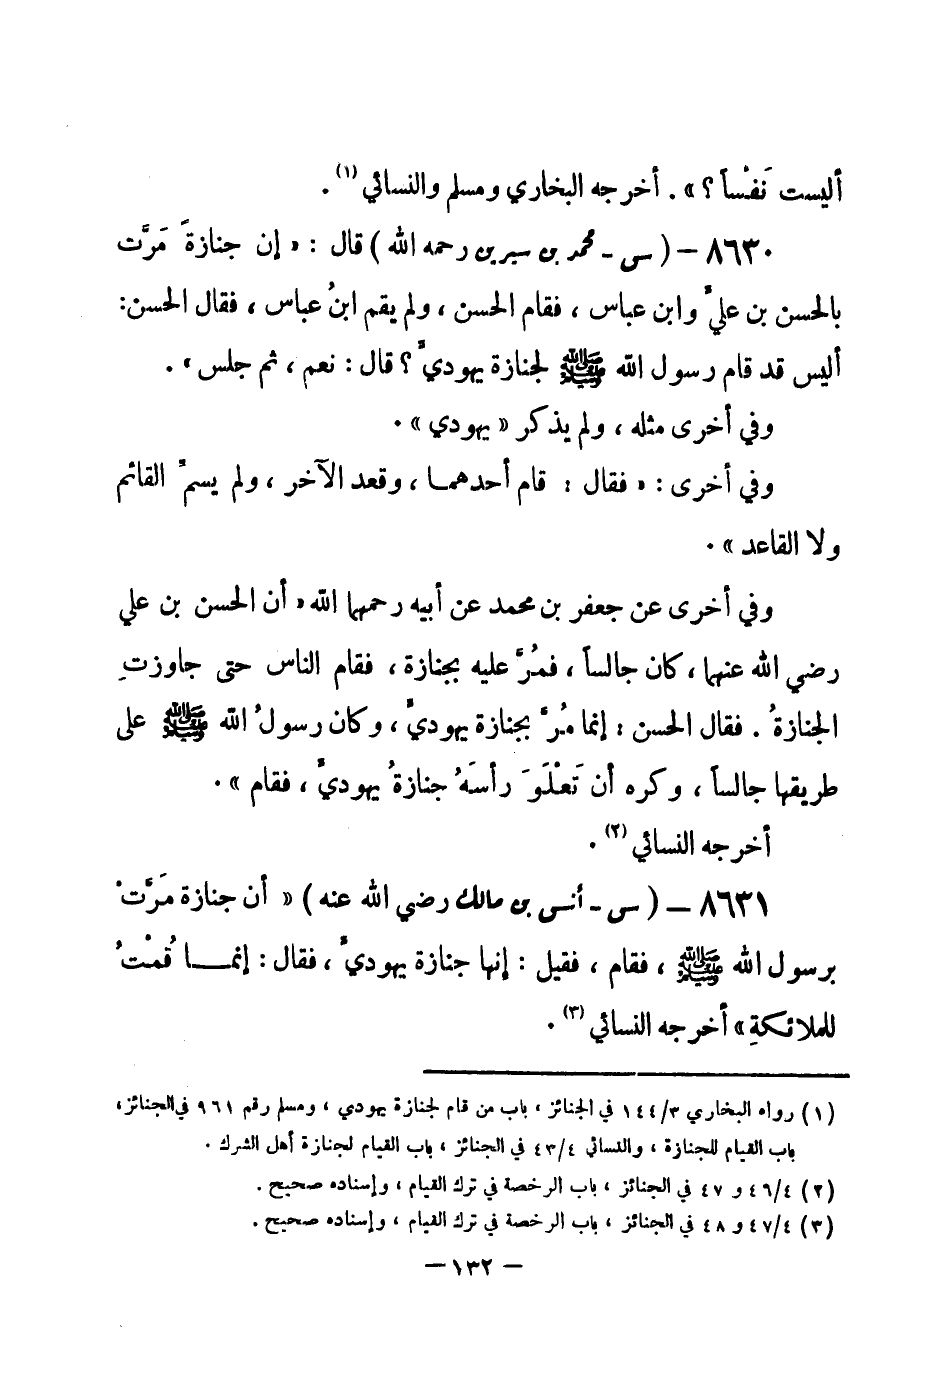 أليست نَفْساً ؟ » . أخرجه البخاري ومسلم والنسائي (١) .
٨٦٣٠ — ( س - محمد بن سيرين رحمه الله ) قال : « إن جنازةً مَرَّت
بالحسن بن عليٍّ وابن عباس ، فقام الحسن ، ولم يقم ابنُ عباس ، فقال الحسن:
أليس قد قام رسول الله ﷺ لجنازة يهوديٍّ ؟ قال : نعم ، ثم جلس » .
وفي أخرى مثله ، ولم يذكر « يهودي » .
وفي أخرى : « فقال : قام أحدهمـا ، وقعد الآخر ، ولم يسمِّ القائم
ولا القاعد » .
وفي أخرى عن جعفر بن محمد عن أبيه رحمهما الله « أن الحسن بن علي
رضي الله عنهما ، كان جالساً ، فمُرَّ عليه بجنازة ، فقام الناس حتى جاوزتِ
الجنازةُ . فقال الحسن : إنما مُرَّ بجنازة يهوديٍّ ، وكان رسولُ الله ﷺ على
طريقها جالساً ، وكره أن تَعْلُوَ رأسَهُ جنازةُ يهوديٍّ ، فقام » .
أخرجه النسائي (٢) .
٨٦٣١ — ( س - أنس بن مالك رضي الله عنه ) « أن جنازة مَرَّتْ
برسول الله ﷺ ، فقام ، فقيل : إنها جنازة يهوديٍّ ، فقال : إنمـــا قُمْتُ
للملائكةِ » أخرجه النسائي (٣) .
(١) رواه البخاري ١٤٤/٣ في الجنائز ، باب من قام لجنازة يهودي ، ومسلم رقم ٩٦١ في الجنائز ،
باب القيام للجنازة ، والنسائي ٤٣/٤ في الجنائز ، باب القيام لجنازة أهل الشرك .
(٢) ٤٦/٤ و ٤٧ في الجنائز ، باب الرخصة في ترك القيام ، وإسناده صحيح .
(٣) ٤٧/٤ و ٤٨ في الجنائز ، باب الرخصة في ترك القيام ، وإسناده صحيح .
— ١٣٢ —